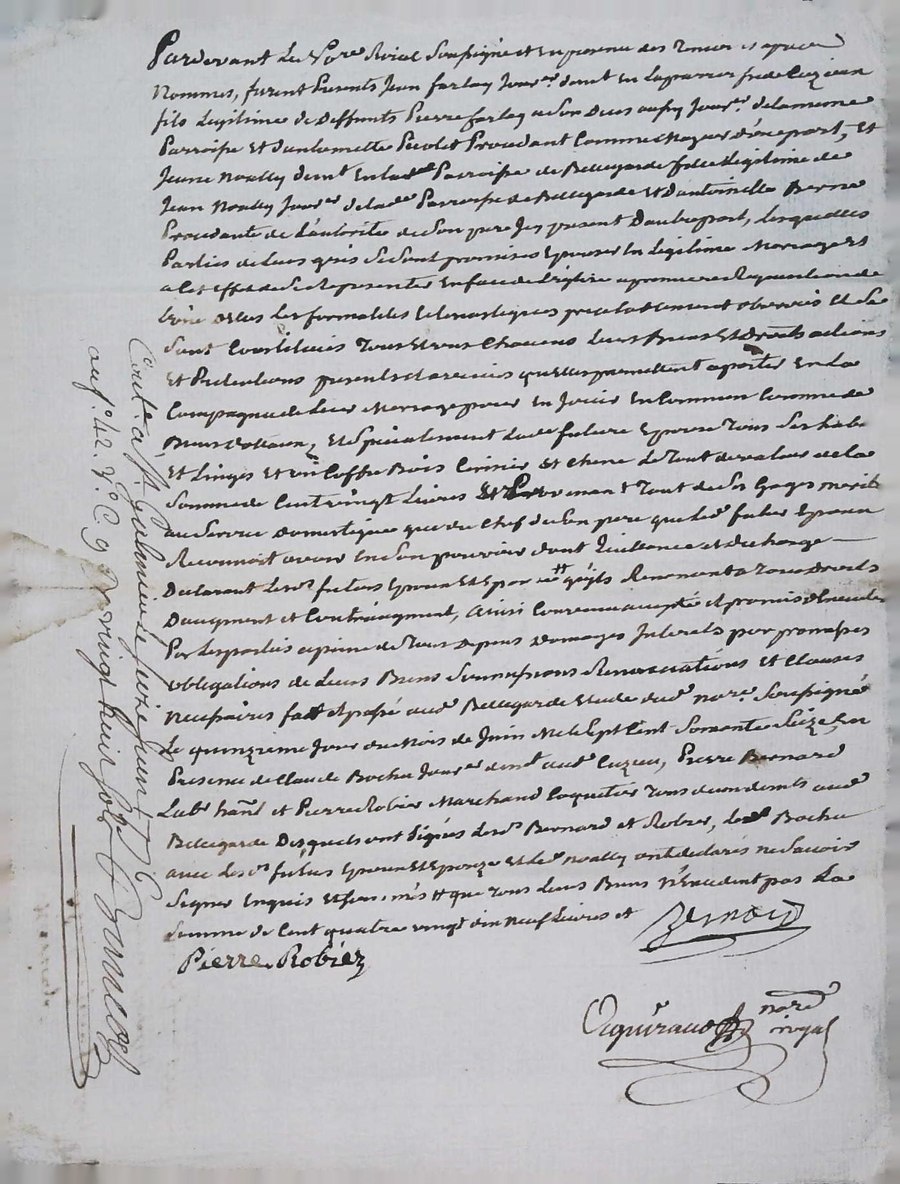 Pardevant Le No.re Roial Soussigné et En presence des Temoins cy apres
Nommés, furent Presents Jean farlay Jour.er dem.t En La parroisse de Cuzieu
fils Legitime de Deffunts Pierre farlay a Son Deces aussy Jour.er de la meme
Parroisse Et d'antoinette Procedant Comme Majeur d'une part, Et
Jeanne Noally dem.t En lad.e Parroisse de Bellegarde fille Legitime de
Jean Noally Jour.er de lad.e Parroisse de Bellegarde et d'antoinette Berne
Procedante de L'autorité de Son pere Icy present D'autre part, Lesquelles
Parties de Leurs grés Se Sont promises Epouser En Legitime Mariage Et
a Cet Effet de Se Representer En face de L'église a premiere Requisition de
L'une d'elles Les formalités Ecclesiastiques prealablement observées Et Se
Sont Constitués Tous Et uns Chacuns Leurs Biens Et Droits actions
Et Pretentions presents et avenirs qu'elles promettent aporter En La
Compagnie de Leur Mariage pour En Jouir En Commun Comme de
Biens Dottaux, Et Specialement lad.e future Epouse Tous Ses habits
Et Linges Et un Coffre Bois Cerisier et Chene Le Tout de valeur de la
Somme de Cent vingt Livres Et Provenant Tant de Ses Gages merités
au Service Domestique que du Chef de Son pere que Led.t futur Epoux
Reconnoit avoir En Son pouvoir dont Quittance et decharge —
Declarant Les.d futurs Epoux Et Epouse qu'ils Renoncent a Tous Droits
D'augment et Contraugment, Ainsi Convenu accepté et promis Executer
Par Les parties a peine de Tous Depens Domages Interets par promesses
obligations de Leurs Biens Soumissions Renonciations Et Clauses
Necessaires fait et passé aud.t Bellegarde Etude dud.t no.re Soussigné
Le quinzieme Jour du Mois de Juin Mil Sept Cent Soixante Seize En
Presence de Claude Bochu Jour.er dem.t aud.t Cuzieu, Pierre Bernard
Lab.r hab.t et Pierre Robier Marchand Coquetier Tous deux dem.ts aud.t
Bellegarde Desquels ont Signés Les.d Bernard et Robier, Led.t Bochu
avec Les.d futurs Epoux Et Epouze Et Led.t Noally ont declarés ne Savoir
Signer Enquis Et Sommés # que Tous Leurs Biens N'Excedent pas La
Somme de Cent quatre vingt dix Neuf Livres et
Bernard
Pierre Robier
no.re royal
Cont.lé a S.t Galmier Le Seize Juin 1776